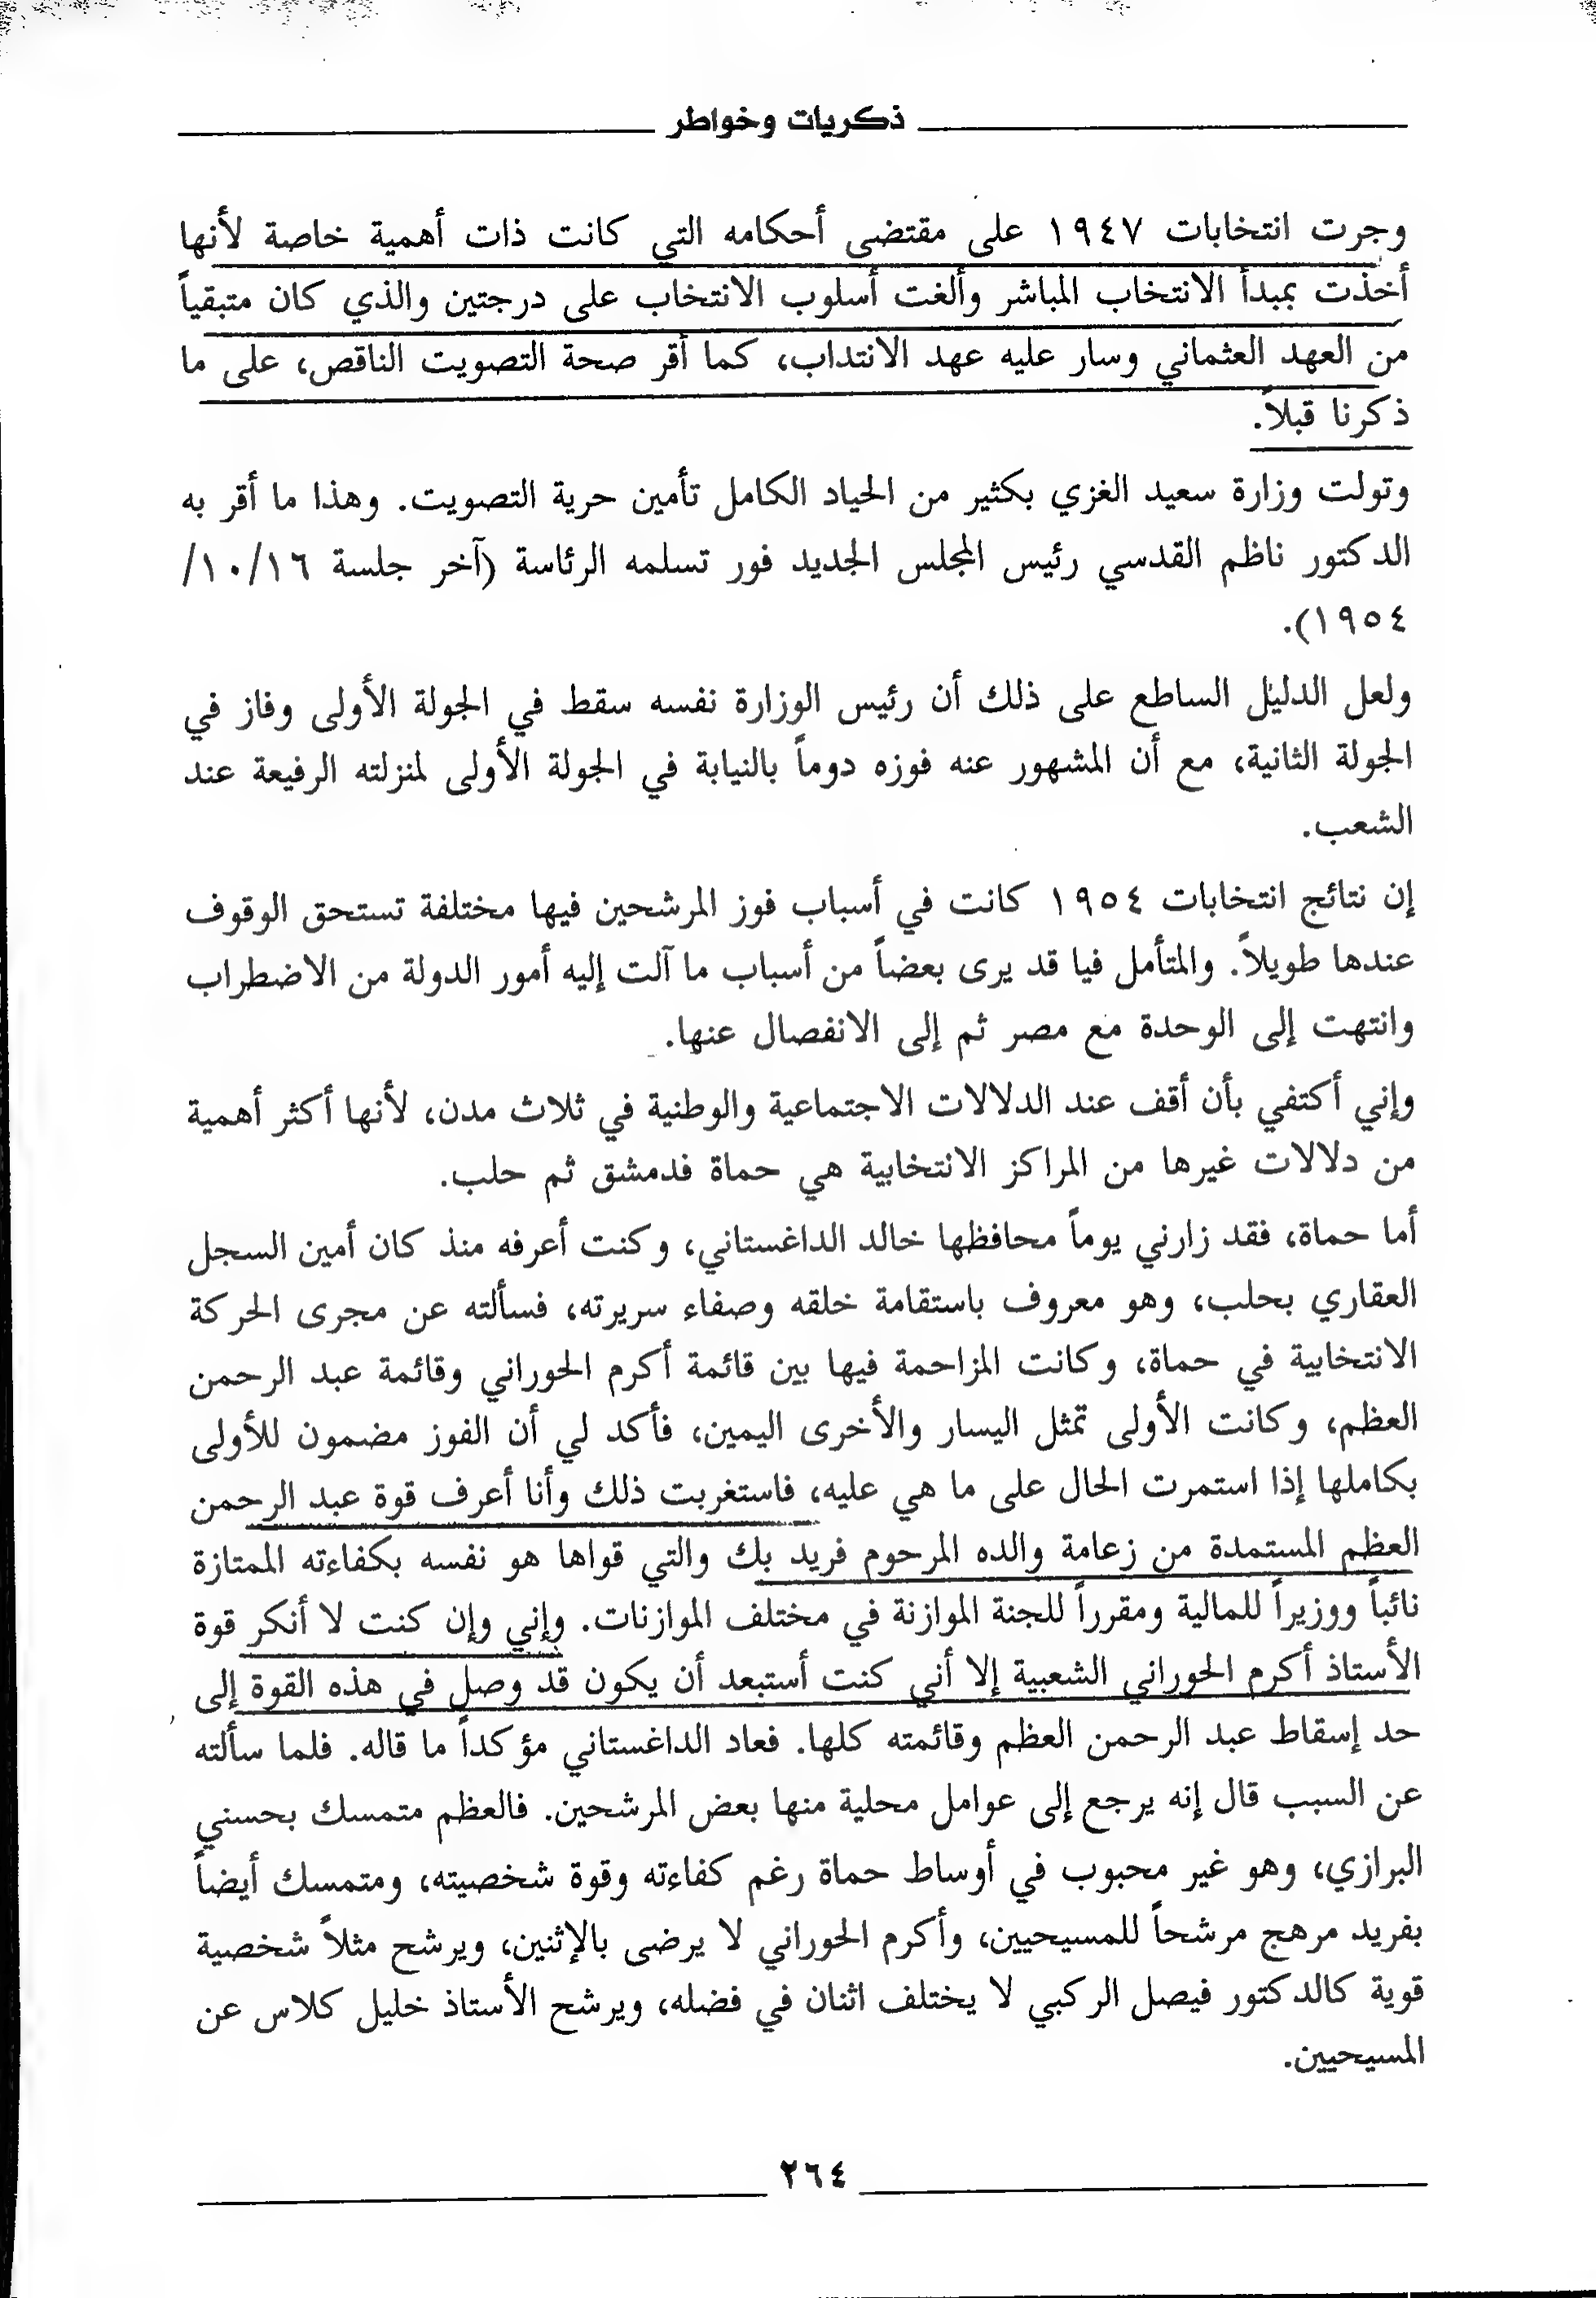 ذكريات وخواطر
وجرت انتخابات ١٩٤٧ على مقتضى أحكامه التي كانت ذات أهمية خاصة لأنها
أخذت بمبدأ الانتخاب المباشر وألغت أسلوب الانتخاب على درجتين والذي كان متبقياً
من العهد العثماني وسار عليه عهد الانتداب، كما أقر صحة التصويت الناقص، على ما
ذكرنا قبلاً.
وتولت وزارة سعيد الغزي بكثير من الحياد الكامل تأمين حرية التصويت. وهذا ما أقر به
الدكتور ناظم القدسي رئيس المجلس الجديد فور تسلمه الرئاسة (آخر جلسة ١٠/١٦/
١٩٥٤).
ولعل الدليل الساطع على ذلك أن رئيس الوزارة نفسه سقط في الجولة الأولى وفاز في
الجولة الثانية، مع أن المشهور عنه فوزه دوماً بالنيابة في الجولة الأولى لمنزلته الرفيعة عند
الشعب.
إن نتائج انتخابات ١٩٥٤ كانت في أسباب فوز المرشحين فيها مختلفة تستحق الوقوف
عندها طويلاً. والمتأمل فيا قد يرى بعضاً من أسباب ما آلت إليه أمور الدولة من الاضطراب
وانتهت إلى الوحدة مع مصر ثم إلى الانفصال عنها.
وإني أكتفي بأن أقف عند الدلالات الاجتماعية والوطنية في ثلاث مدن، لأنها أكثر أهمية
من دلالات غيرها من المراكز الانتخابية هي حماة فدمشق ثم حلب.
أما حماة، فقد زارني يوماً محافظها خالد الداغستاني، وكنت أعرفه منذ كان أمين السجل
العقاري بحلب، وهو معروف باستقامة خلقه وصفاء سريرته، فسألته عن مجرى الحركة
الانتخابية في حماة، وكانت المزاحمة فيها بين قائمة أكرم الحوراني وقائمة عبد الرحمن
العظم، وكانت الأولى تمثل اليسار والأخرى اليمين، فأكد لي أن الفوز مضمون للأولى
بكاملها إذا استمرت الحال على ما هي عليه، فاستغربت ذلك وأنا أعرف قوة عبد الرحمن
العظم المستمدة من زعامة والده المرحوم فريد بك والتي قواها هو نفسه بكفاءته الممتازة
نائباً ووزيراً للمالية ومقرراً للجنة الموازنة في مختلف الموازنات. وإني وإن كنت لا أنكر قوة
الأستاذ أكرم الحوراني الشعبية إلا أني كنت أستبعد أن يكون قد وصل في هذه القوة إلى
حد إسقاط عبد الرحمن العظم وقائمته كلها. فعاد الداغستاني مؤكداً ما قاله. فلما سألته
عن السبب قال إنه يرجع إلى عوامل محلية منها بعض المرشحين. فالعظم متمسك بحسني
البرازي، وهو غير محبوب في أوساط حماة رغم كفاءته وقوة شخصيته، ومتمسك أيضاً
بفريد مرهج مرشحاً للمسيحيين، وأكرم الحوراني لا يرضى بالإثنين، ويرشح مثلاً شخصية
قوية كالدكتور فيصل الركبي لا يختلف اثنان في فضله، ويرشح الأستاذ خليل كلاس عن
المسيحيين.
٢٦٤